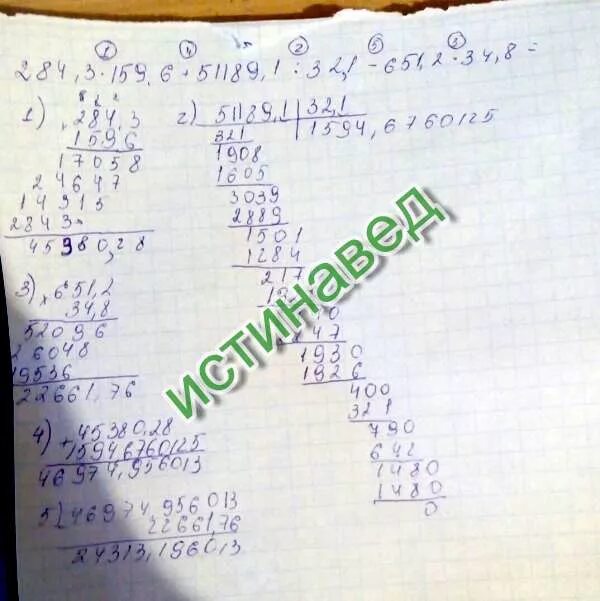 ① ④ ② ⑤ ③
284,3·159,6+51189,1:32,1-651,2·34,8=
1)
8 2 2
284,3
1596
17058
24647
14915
2843
45980,28
2)
51189,1 32,1
321 1594,6760125
1908
1605
3039
2889
1501
1284
217
1930
1926
400
321
790
642
1480
1480
0
3)
×651,2
34,8
52096
26048
19536
22661,76
4)
+45380,28
1594,6760125
46974,956013
5)
46974,956013
22661,76
24313,196013
ИСТИНАВЕД